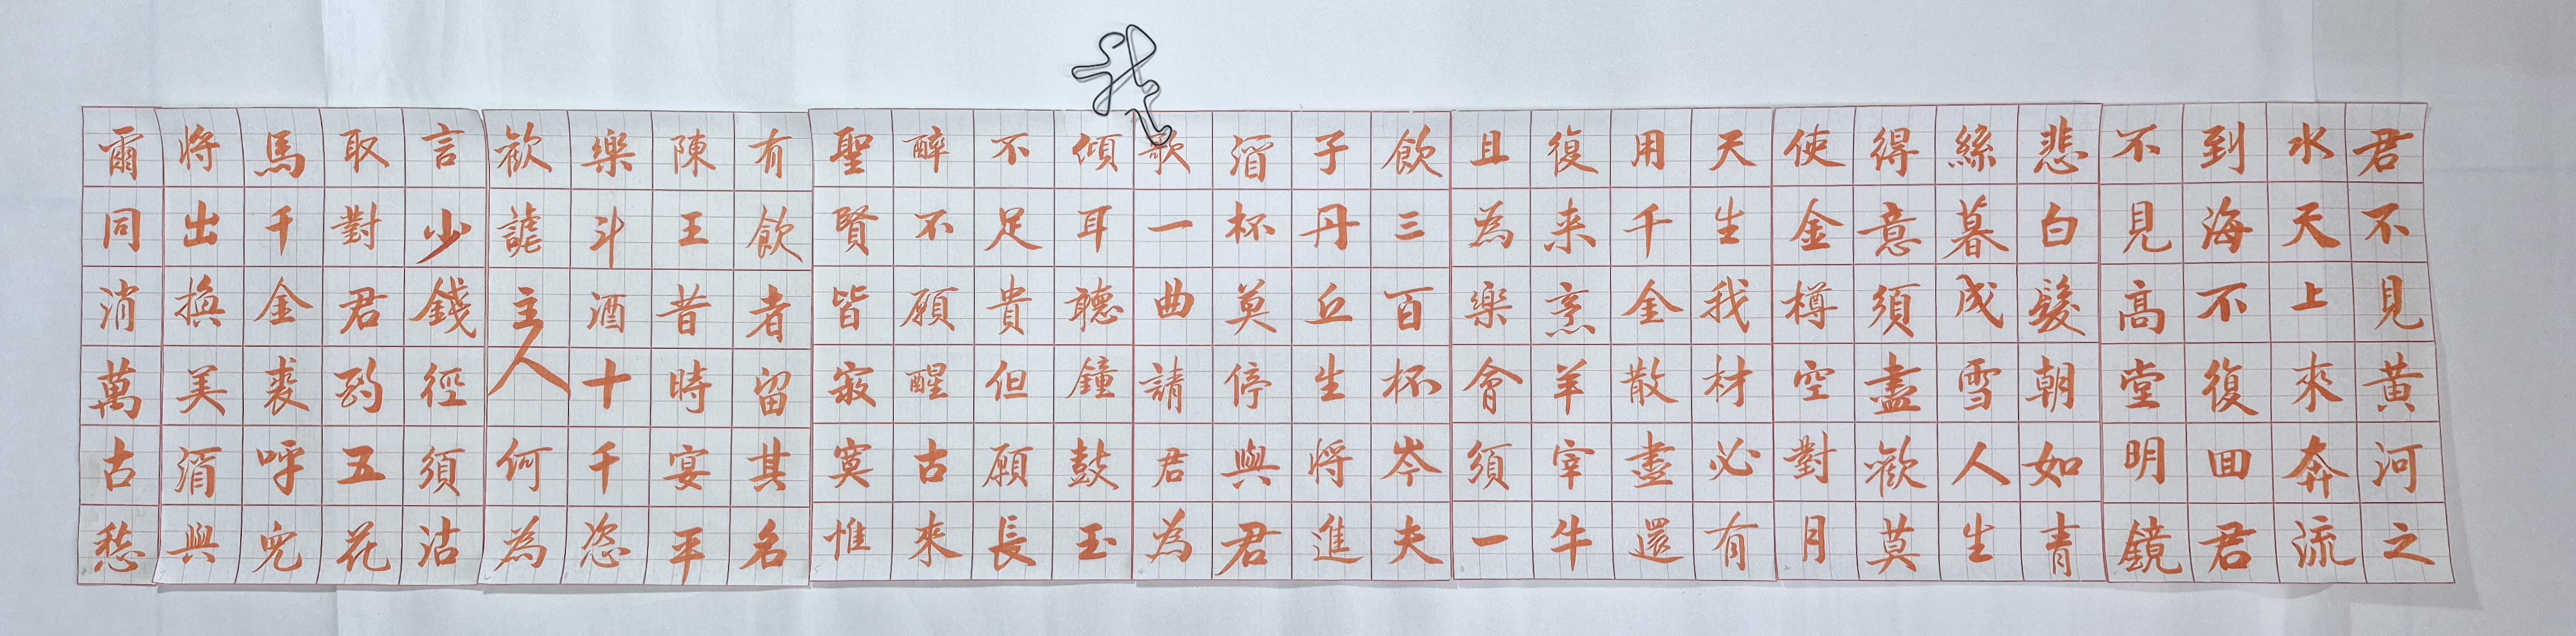 君不見黃河之
水天上來奔流
到海不復囬君
不見高堂明鏡
悲白髮朝如青
絲暮成雪人生
得意須盡歡莫
使金樽空對月
天生我材必有
用千金散盡還
復来烹羊宰牛
且為樂會須一
飲三百杯岑夫
子丹丘生將進
酒杯莫停與君
歌一曲請君為
傾耳聽鐘鼓玉
不足貴但願長
醉不願醒古來
聖賢皆寂寞惟
有飲者留其名
陳王昔時宴平
樂斗酒十千恣
歡謔主人何為
言少錢徑須沽
取對君酌五花
馬千金裘呼兒
將出換美酒與
爾同消萬古愁